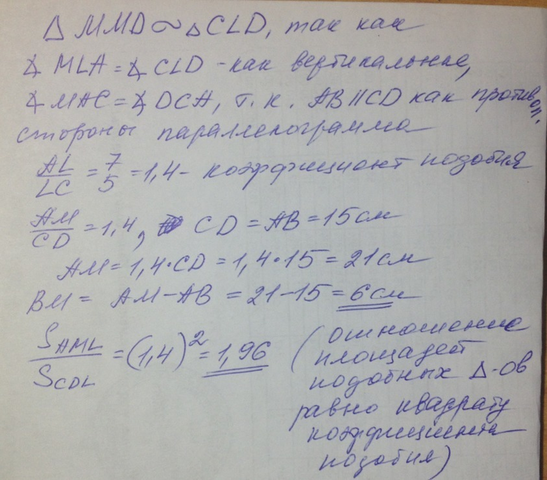 Δ MMD ~ Δ CLD, так как
∡ MLA = ∡ CLD - как вертикальные,
∡ MAC = ∡ DCA, т. к. AB || CD как противоп.
стороны параллелограмма
AL/LC = 7/5 = 1,4 - коэффициент подобия
AM/CD = 1,4, CD = AB = 15 см
AM = 1,4 · CD = 1,4 · 15 = 21 см
BM = AM - AB = 21 - 15 = 6 см
S AML / S CDL = (1,4)² = 1,96
(отношение
площадей
подобных Δ-ов
равно квадрату
коэффициента
подобия)